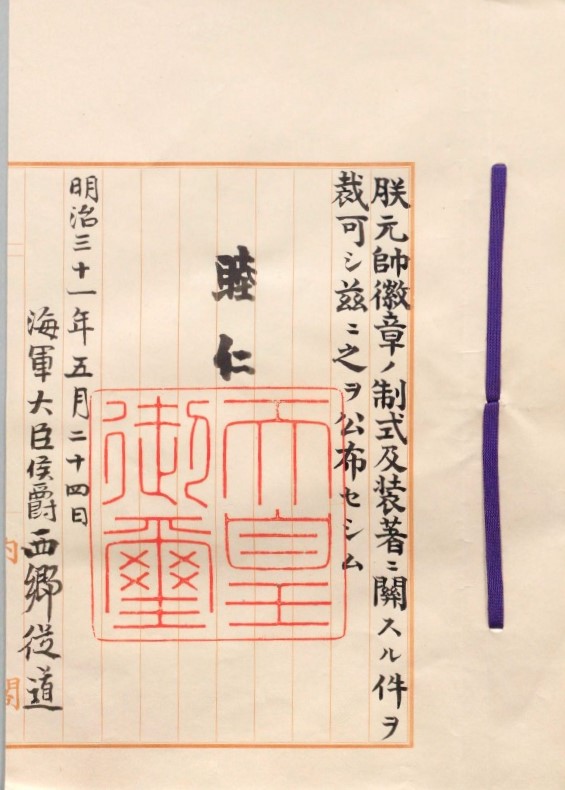 朕元帥徽章ノ制式及装著ニ關スル件ヲ
裁可シ茲ニ之ヲ公布セシム
睦仁
天皇
御璽
明治三十一年五月二十四日
海軍大臣侯爵西郷従道
内閣